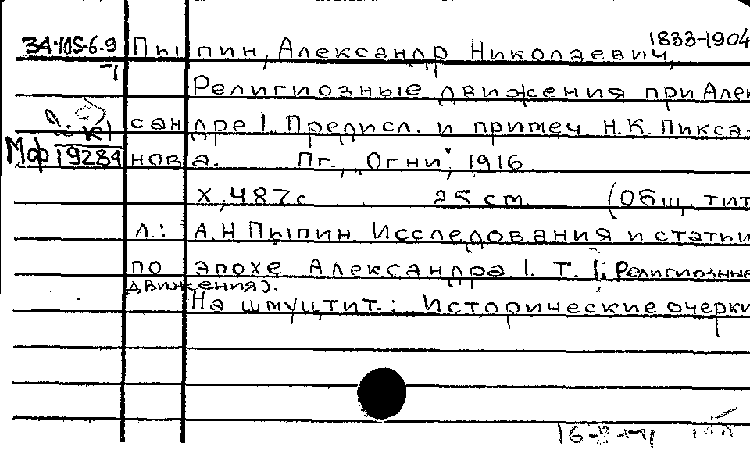 1833-1904
34.105-6.9 Пыпин, Александр Николаевич,
-1
Религиозные движения при Алек
сандре I. Предисл. и примеч. Н.К. Пикса-
Мф 19284 нова. Пг., „Огни“, 1916
X, 487 с. 25 cm. (Общ. тит.
л.: А.Н Пыпин. Исследования и статьи
по эпохе Александра I. Т. I; Религиозные
движения).
На шмуцтит.: Исторические очерки